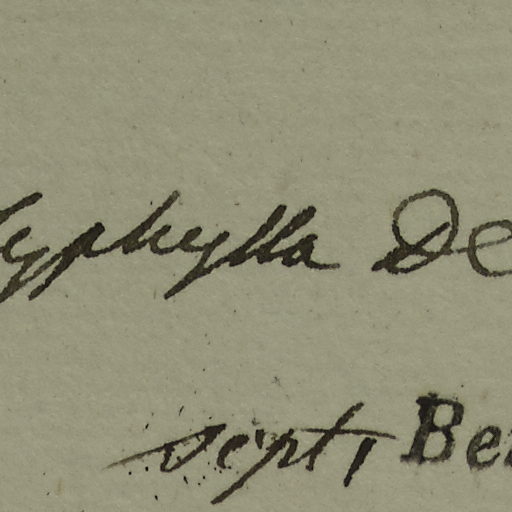 yphylla De
sept, Be